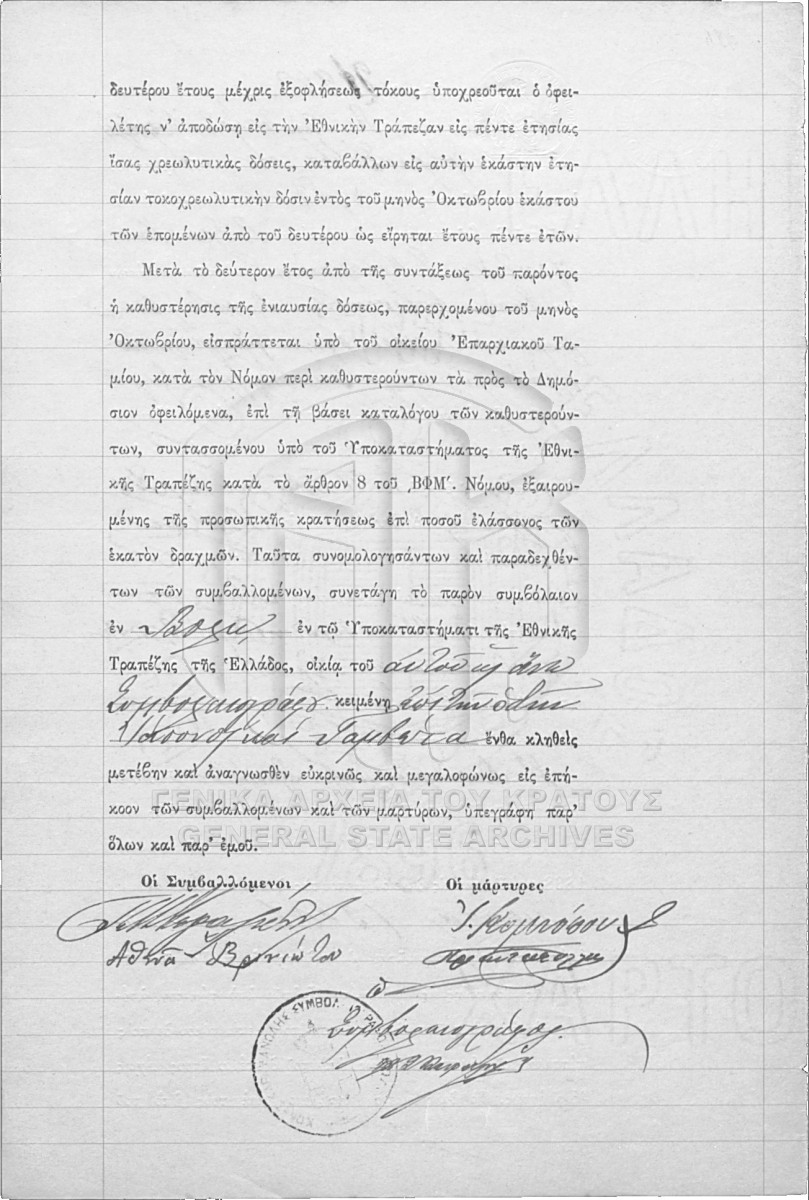 δευτέρου ἔτους μέχρις ἐξοφλήσεως τόκους ὑποχρεοῦται ὁ ὀφει-
λέτης ν' ἀποδώσῃ εἰς τὴν Ἐθνικὴν Τράπεζαν εἰς πέντε ἐτησίας
ἴσας χρεωλυτικὰς δόσεις, καταβάλλων εἰς αὐτὴν ἑκάστην ἐτη-
σίαν τοκοχρεωλυτικὴν δόσιν ἐντὸς τοῦ μηνὸς Ὀκτωβρίου ἑκάστου
τῶν ἑπομένων ἀπὸ τοῦ δευτέρου ὡς εἴρηται ἔτους πέντε ἐτῶν.
Μετὰ τὸ δεύτερον ἔτος ἀπὸ τῆς συντάξεως τοῦ παρόντος
ἡ καθυστέρησις τῆς ἐνιαυσίας δόσεως, παρερχομένου τοῦ μηνὸς
Ὀκτωβρίου, εἰσπράττεται ὑπὸ τοῦ οἰκείου Ἐπαρχιακοῦ Τα-
μίου, κατὰ τὸν Νόμον περὶ καθυστερούντων τὰ πρὸς τὸ Δημό-
σιον ὀφειλόμενα, ἐπὶ τῇ βάσει καταλόγου τῶν καθυστερούν-
των, συντασσομένου ὑπὸ τοῦ Ὑποκαταστήματος τῆς Ἐθνι-
κῆς Τραπέζης κατὰ τὸ ἄρθρον 8 τοῦ ͵ΒΦΜ'. Νόμου, ἐξαιρου-
μένης τῆς προσωπικῆς κρατήσεως ἐπὶ ποσοῦ ἐλάσσονος τῶν
ἑκατὸν δραχμῶν. Ταῦτα συνομολογησάντων καὶ παραδεχθέν-
των τῶν συμβαλλομένων, συνετάγη τὸ παρὸν συμβόλαιον
ἐν ἐν τῷ Ὑποκαταστήματι τῆς Ἐθνικῆς
Τραπέζης τῆς Ἑλλάδος, οἰκίᾳ τοῦ
Συμβολαιογράφου κειμένῃ
ἔνθα κληθεὶς
μετέβην καὶ ἀναγνωσθὲν εὐκρινῶς καὶ μεγαλοφώνως εἰς ἐπή-
κοον τῶν συμβαλλομένων καὶ τῶν μαρτύρων, ὑπεγράφη παρ'
ὅλων καὶ παρ' ἐμοῦ.
ΓΕΝΙΚΑ ΑΡΧΕΙΑ ΤΟΥ ΚΡΑΤΟΥΣ
GENERAL STATE ARCHIVES
Οἱ Συμβαλλόμενοι Οἱ μάρτυρες
Ἀθηνᾶ
Ὁ
Συμβολαιογράφος